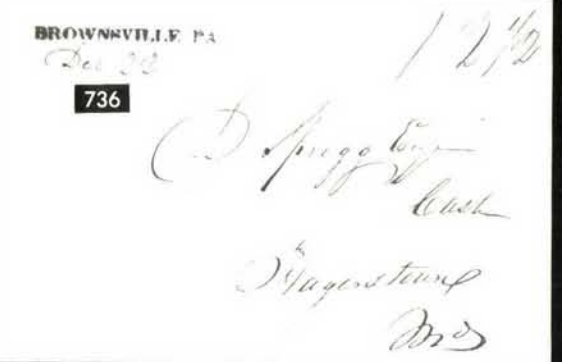 BROWNSVILLE PA
Dec 22
12 1/2
736
D Sprigg Esqr
Cash
Hagerstown
Md